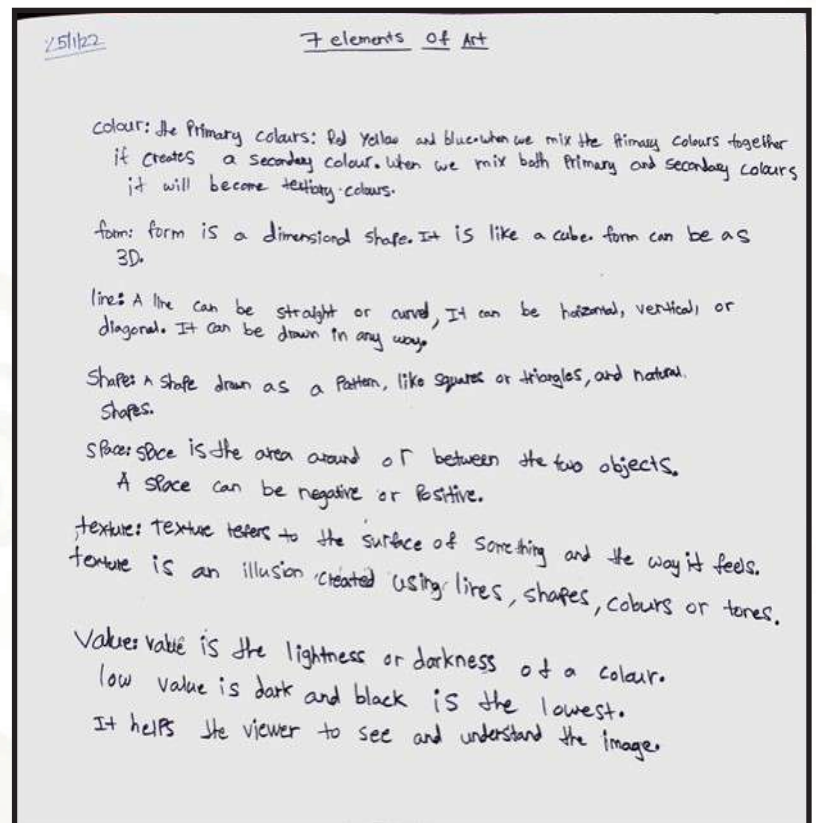 25/1/22
7 elements Of Art
colour: the Primary colours: Red Yellow and blue. when we mix the Primary colours together
it creates a secondary colour. when we mix both Primary and secondary colours
it will become tertiary colours.
form: form is a dimensional shape. It is like a cube. form can be as
3D.
line: A line can be straight or curved, It can be horizontal, vertical, or
diagonal. It can be drawn in any way.
Shape: A shape drawn as a Pattern, like squares or triangles, and natural
shapes.
Space: space is the area around or between the two objects.
A space can be negative or Positive.
texture: Texture refers to the surface of something and the way it feels.
texture is an illusion created using lines, shapes, colours or tones.
Value: value is the lightness or darkness of a colour.
low value is dark and black is the lowest.
It helps the viewer to see and understand the image.